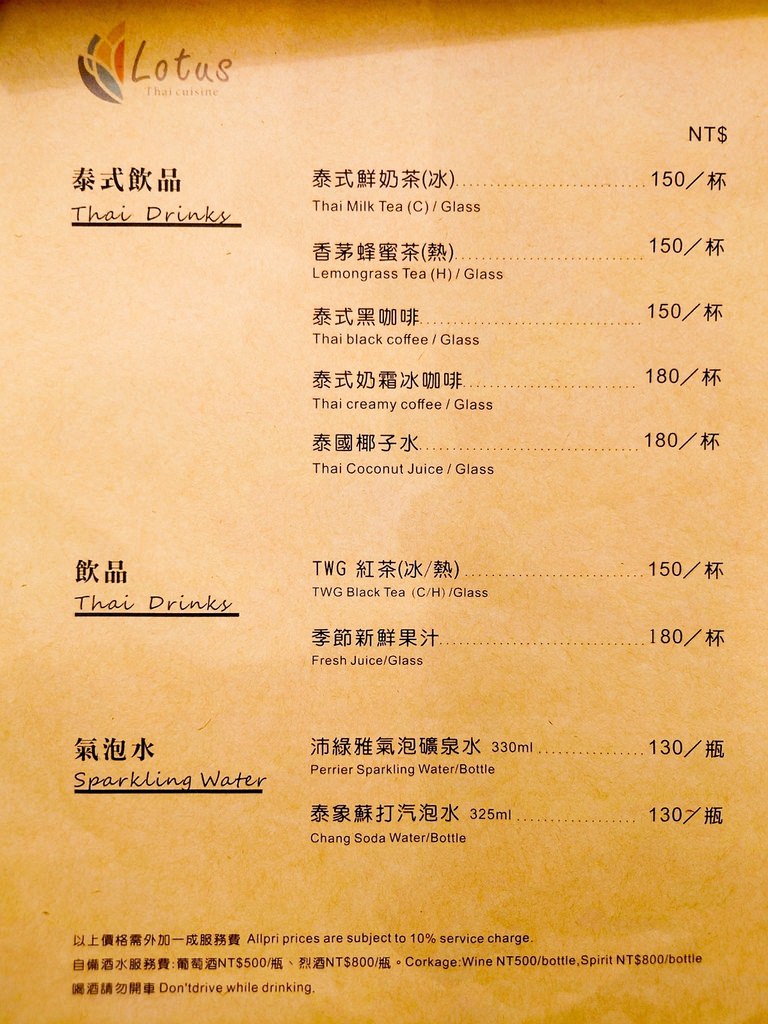 Lotus
Thai cuisine
NT$
泰式飲品
Thai Drinks
泰式鮮奶茶(冰)........................150／杯
Thai Milk Tea (C) / Glass
香茅蜂蜜茶(熱)........................150／杯
Lemongrass Tea (H) / Glass
泰式黑咖啡............................150／杯
Thai black coffee / Glass
泰式奶霜冰咖啡......................180／杯
Thai creamy coffee / Glass
泰國椰子水............................180／杯
Thai Coconut Juice / Glass
飲品
Thai Drinks
TWG 紅茶(冰/熱)......................150／杯
TWG Black Tea (C/H) /Glass
季節新鮮果汁..........................180／杯
Fresh Juice/Glass
氣泡水
Sparkling Water
沛綠雅氣泡礦泉水 330ml..............130／瓶
Perrier Sparkling Water/Bottle
泰象蘇打汽泡水 325ml................130／瓶
Chang Soda Water/Bottle
以上價格需外加一成服務費 Allpri prices are subject to 10% service charge.
自備酒水服務費:葡萄酒NT$500/瓶、烈酒NT$800/瓶。Corkage:Wine NT500/bottle,Spirit NT$800/bottle
喝酒請勿開車 Don'tdrive while drinking.